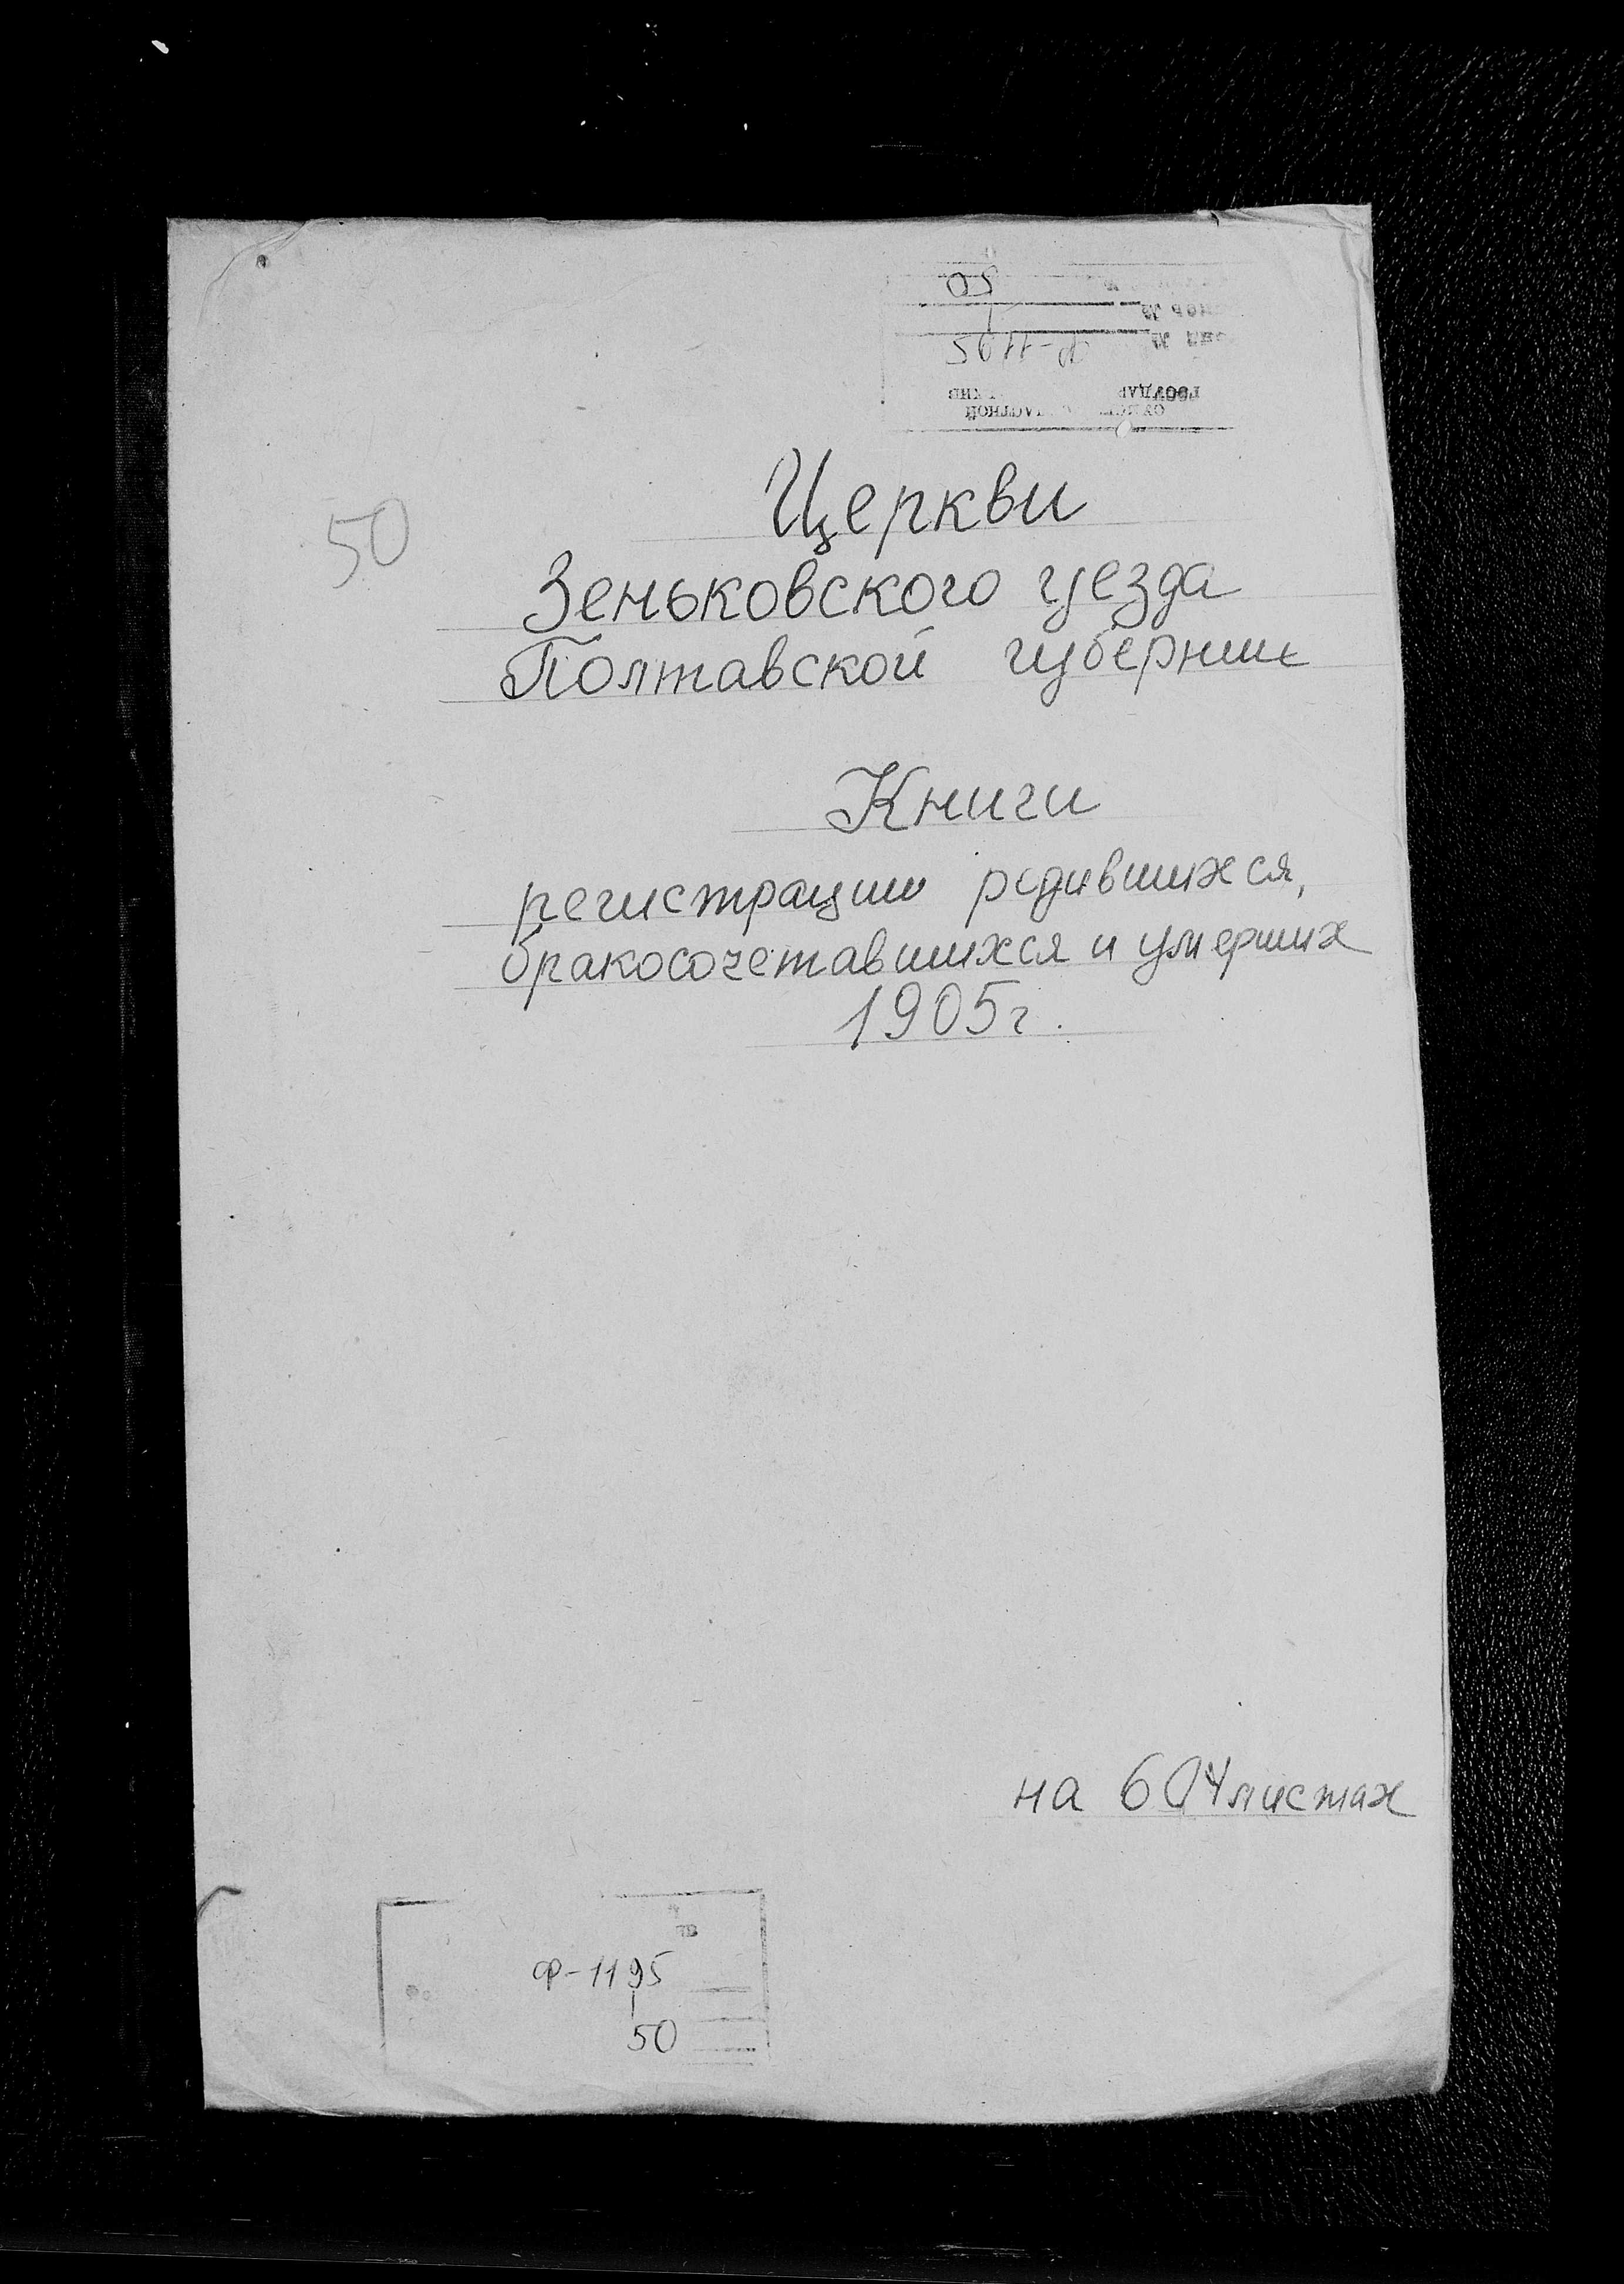 50
Ф-1195
ГОСУДАР
СУМСК ОБЛАСТНОЙ
50
Церкви
Зеньковского уезда
Полтавской губернии
Книги
регистрации родившихся,
бракосочетавшихся и умерших
1905г.
на 604 листах
Ф-1195
50